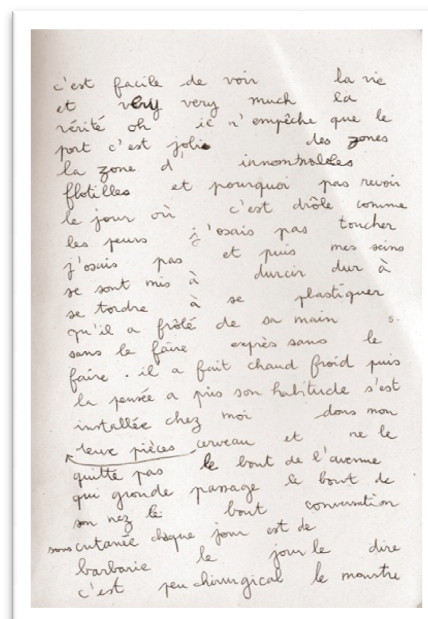 c'est facile de voir la vie
et very very much la
vérité oh ie n'empêche que le
port c'est jolie des zones
la zone d' innombrables
flotilles et pourquoi pas revoir
le jour où c'est drôle comme
les peurs j'osais pas toucher
j'osais pas et puis mes seins
se sont mis à durcir dur à
se tordre à se plastiquer
qu'il a frôlé de sa main s.
sans le faire exprès sans le
faire. il a fait chaud froid puis
la pensée a pris son habitude s'est
installée chez moi dans mon
leux pièces cerveau et ne le
quitte pas le bout de l'avenue
qui gronde passage le bout de
son nez le bout conversation
sous cutanée chaque jour est de
barbarie le jour le dire
c'est peu chirurgical le monstre